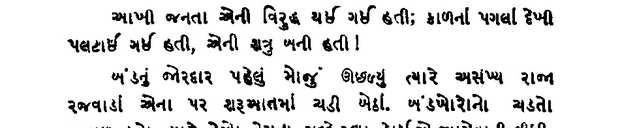 આખી જનતા એની વિરુદ્ધ થઈ ગઈ હતી; કાળનાં પગલાં દેખી
પલટાઈ ગઈ હતી, એની શત્રુ બની હતી !
બંડનું જોરદાર પહેલું મોજું ઊછળ્યું ત્યારે અસંખ્ય રાજા
રજવાડાં એના પર શરૂઆતમાં ચડી બેઠાં. બંડખોરોનો ચડતો